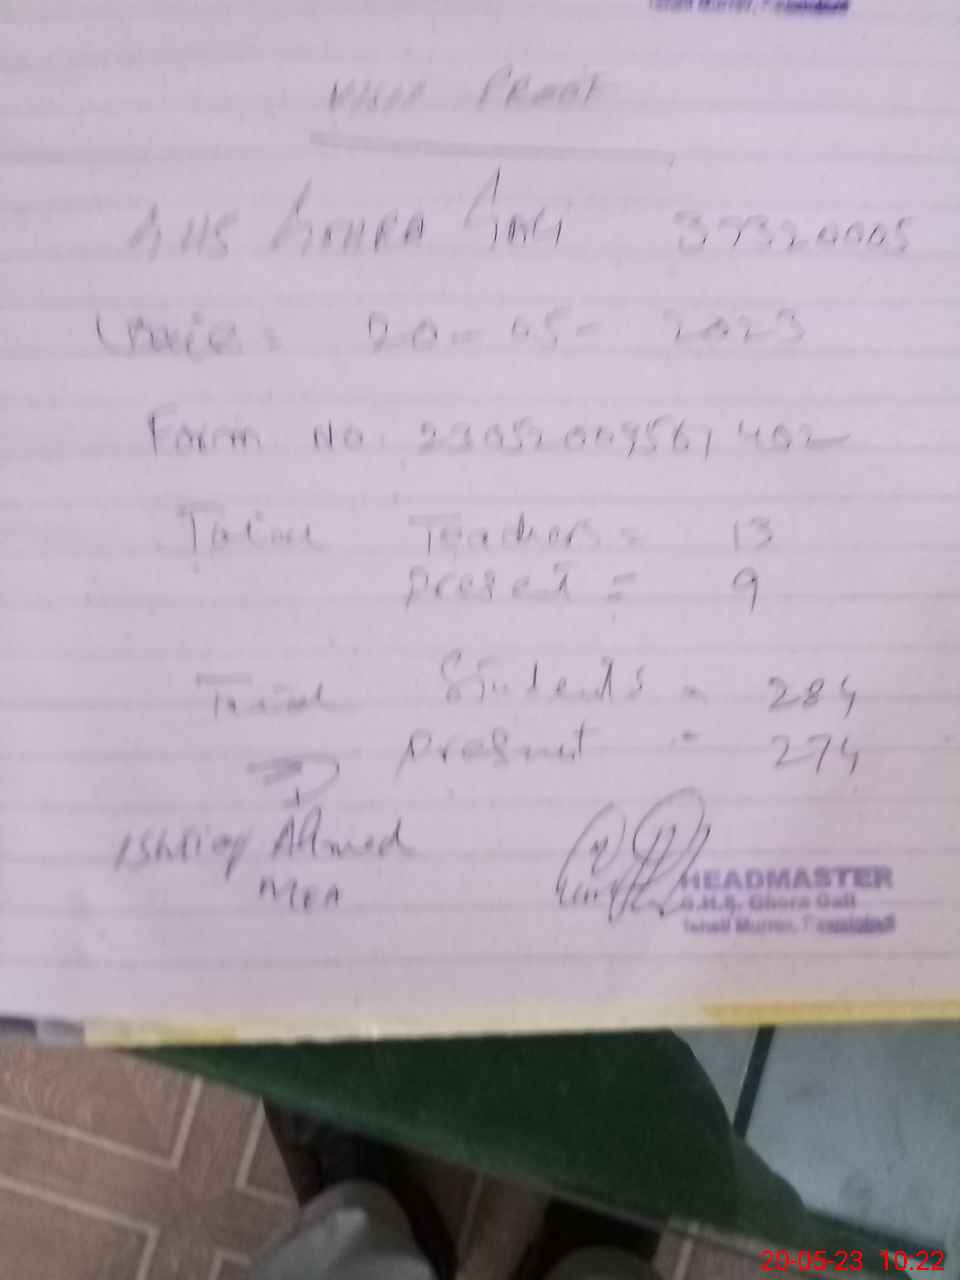 Tehsil Murree,
VISIT PROOF
GHS GHORA GALI 37320005
Date: 20-05-2023
Form No. 23052009567402
Total Teachers = 13
Present = 9
Total Students = 284
Present = 274
Ishtiaq Ahmed
MEA
HEADMASTER
G.H.S. Ghora Gali
Tehsil Murree,
20-05-23 10:22